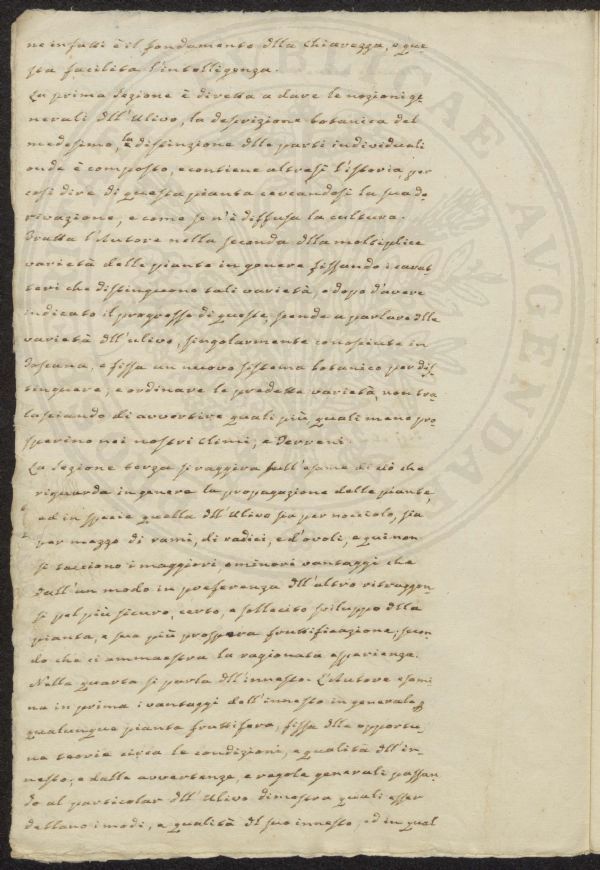 ne infatti è il fondamento dlla chiarezza, e que
sta facilita l'intelligenza.
La prima Sezione è diretta a dare le nozioni ge
nerali dll'Ulivo, la descrizione botanica del
medesimo, la distinzione dlle parti individuali
onde è composto, e contiene altresì l'istoria per
così dire di questa pianta cercandosi la sua de
rivazione, e come se n'è diffusa la cultura.
Tratta l'Autore nella seconda dlla moltiplice
varietà delle piante in genere fissando i carat
teri che distinguono tali varietà, e dopo d'avere
indicato il progresso di queste, scende a parlare dlle
varietà dll'ulivo, singolarmente conosciute in
Toscana, e fissa un nuovo sistema botanico per dis
tinguere, e ordinare le predette varietà, non tra
lasciando di avvertire quali più, quali meno pro
sperino nei nostri climi, e Terreni.
La Sezione terza si raggira sull'esame di ciò che
riguarda in genere la propagazione delle piante,
ed in specie quella dll'Ulivo sia per nocciolo, sia
per mezzo di rami, di radici, e d'ovoli, e qui non
si tacciono i maggiori, o minori vantaggi che
dall'un modo in preferenza dll'altro ritraggon
si pel più sicuro, certo, e sollecito sviluppo dlla
pianta, e sua più prospera fruttificazione, secon
do che ci ammaestra la ragionata esperienza.
Nella quarta si parla dll'innesto. L'Autore esami
na in prima i vantaggi dell'innesto in generale
qualunque pianta fruttifera, fissa dlle opportu
ne teorie circa le condizioni, e qualità dll'in
nesto, e dalle avvertenze, e regole generali passan
do al particolar dll'Ulivo dimostra quali esser
debbano i modi, e qualità dl suo innesto, ed in qual